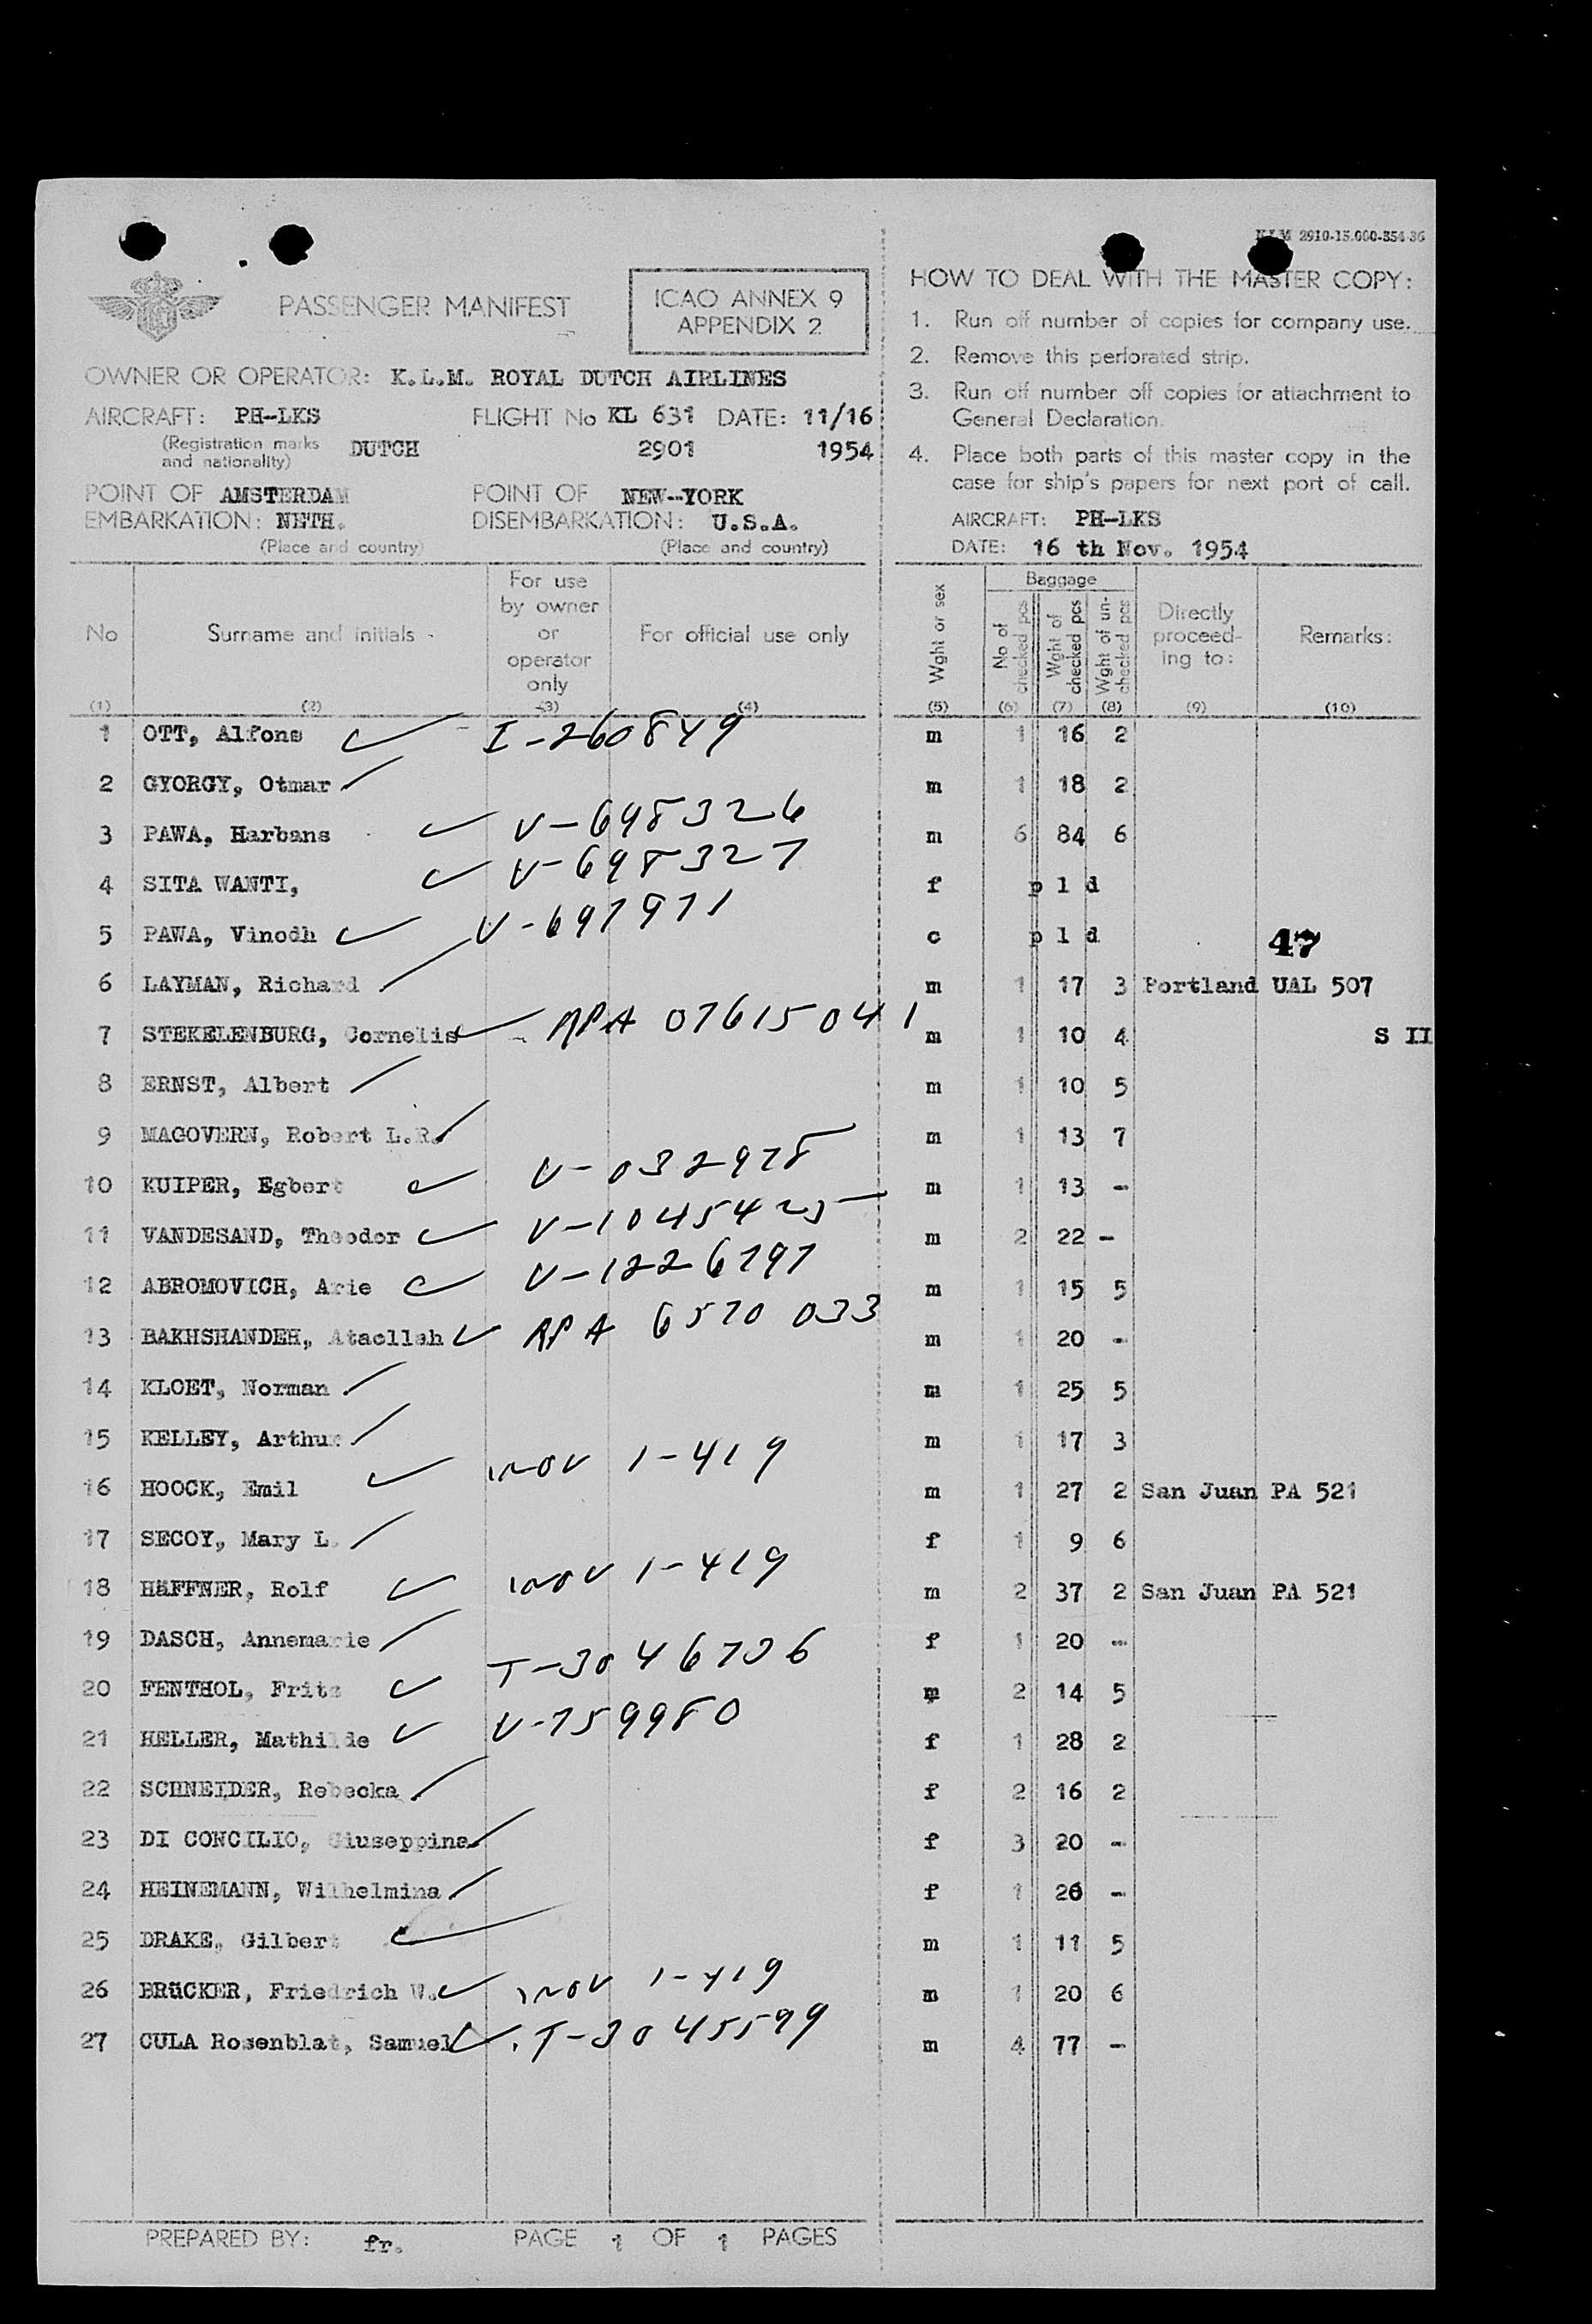 KLM 2910-15.000-354-36
PASSENGER MANIFEST
ICAO ANNEX 9
APPENDIX 2
OWNER OR OPERATOR: K.L.M. ROYAL DUTCH AIRLINES
AIRCRAFT: PH-LKS FLIGHT No KL 631 DATE: 11/16
(Registration marks and nationality) DUTCH 2901 1954
POINT OF EMBARKATION: AMSTERDAM NETH.
(Place and country)
POINT OF DISEMBARKATION: NEW--YORK U.S.A.
(Place and country)
HOW TO DEAL WITH THE MASTER COPY:
1. Run off number of copies for company use.
2. Remove this perforated strip.
3. Run off number off copies for attachment to
General Declaration.
4. Place both parts of this master copy in the
case for ship's papers for next port of call.
AIRCRAFT: PH-LKS
DATE: 16 th Nov. 1954
No
(1)
Surname and initials
(2)
For use
by owner
or
operator
only
(3)
For official use only
(4)
Wght or sex
(5)
Baggage
No of checked pcs
(6)
Wght of checked pcs
(7)
Wght of un-checked pcs
(8)
Directly
proceed-
ing to:
(9)
Remarks:
(10)
1 OTT, Alfons I-260849 m 1 16 2
2 GYORGY, Otmar m 1 18 2
3 PAWA, Harbans V-698326 m 6 84 6
4 SITA WANTI, V-698327 f p l d
5 PAWA, Vinodh V-697971 c p l d 47
6 LAYMAN, Richard m 1 17 3 Portland UAL 507
7 STEKELENBURG, Cornelis RPA 07615041 m 1 10 4 S II
8 ERNST, Albert m 1 10 5
9 MAGOVERN, Robert L.R. m 1 13 7
10 KUIPER, Egbert V-032978 m 1 13 -
11 VANDESAND, Theodor V-1045425 m 2 22 -
12 ABROMOVICH, Arie V-1226797 m 1 15 5
13 BAKHSHANDEH, Ataollah RPA 6570 033 m 1 20 -
14 KLOET, Norman m 1 25 5
15 KELLEY, Arthur m 1 17 3
16 HOOCK, Emil 1-419 m 1 27 2 San Juan PA 521
17 SECOY, Mary L. f 1 9 6
18 HäFFNER, Rolf 1-419 m 2 37 2 San Juan PA 521
19 DASCH, Annemarie f 1 20 -
20 FENTHOL, Fritz T-3046736 m 2 14 5
21 HELLER, Mathilde V-759980 f 1 28 2
22 SCHNEIDER, Rebecka f 2 16 2
23 DI CONCILIO, Giuseppina f 3 20 -
24 HEINEMANN, Wilhelmina f 1 26 -
25 DRAKE, Gilbert m 1 11 5
26 BRüCKER, Friedrich W. 1-419 m 1 20 6
27 CULA Rosenblat, Samuel T-3045599 m 4 77 -
PREPARED BY: fr. PAGE 1 OF 1 PAGES